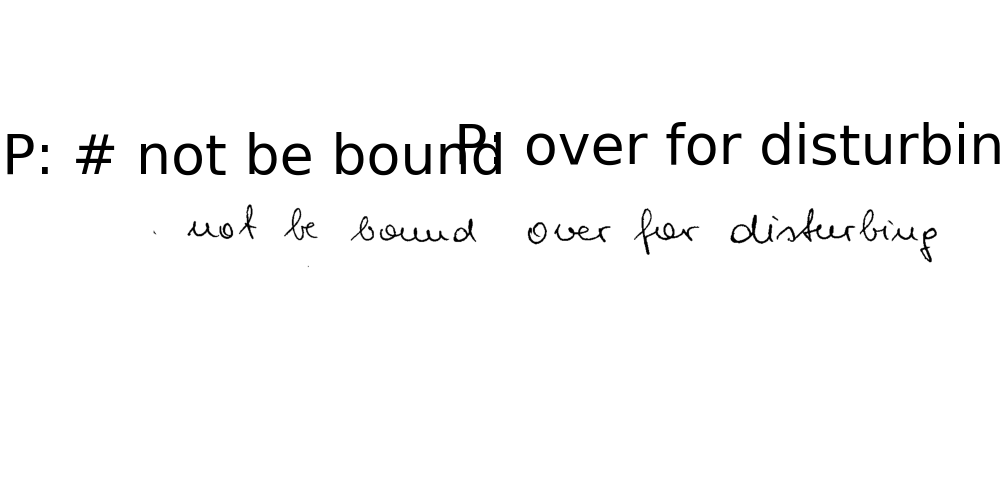 P: # not be bound P: over for disturbin
not be bound over for disturbing